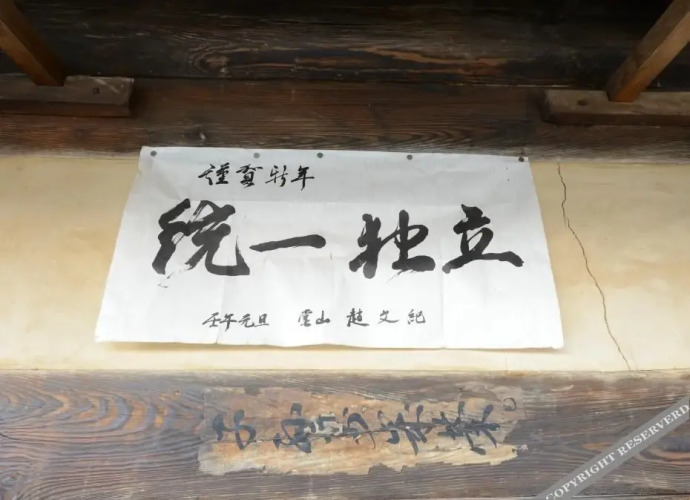 謹賀新年
統一独立
壬午元旦 雲山 趙文紀
COPYRIGHT RESERVERD